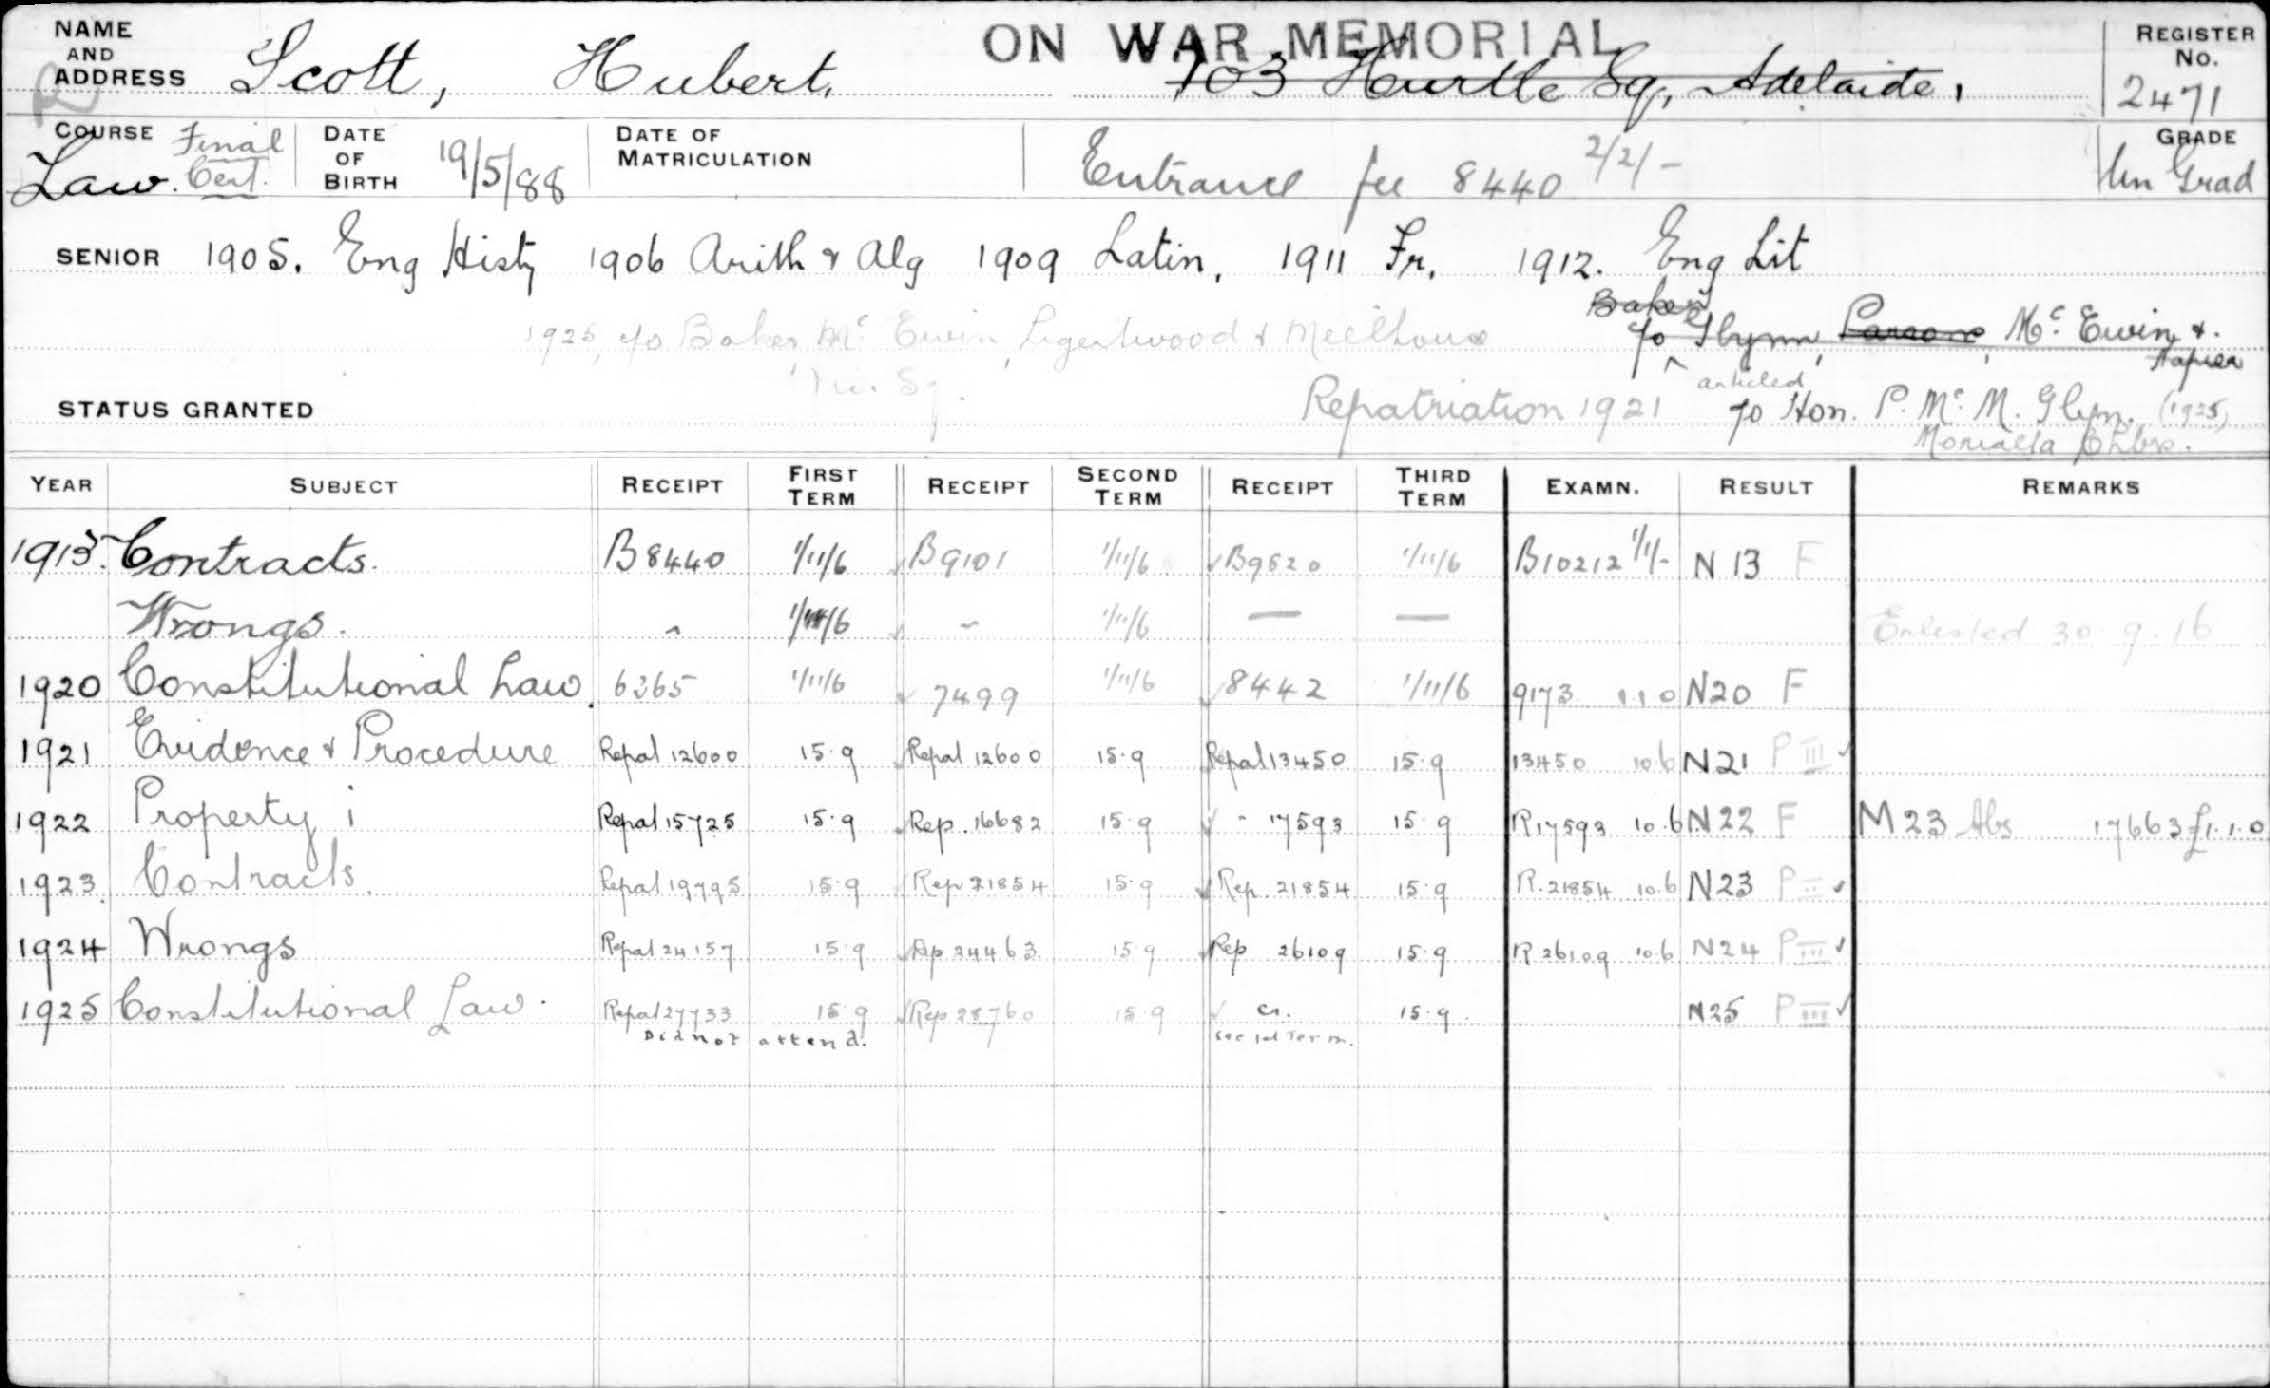 NAME AND ADDRESS Scott, Hubert. ON WAR MEMORIAL 103 Hurtle Sq, Adelaide, REGISTER No. 2471
COURSE Law. Final Cert. DATE OF BIRTH 19/5/88 DATE OF MATRICULATION Entrance fee 8440 2/2/- GRADE Un Grad
SENIOR 1905. Eng Histy 1906 Arith & Alg 1909 Latin, 1911 Fr. 1912. Eng Lit
Baker
1925, c/o Baker, Mc Ewin, Ligertwood & Millhouse c/o Glynn, Parsons, Mc Ewin & Napier
Vic. Sq.
STATUS GRANTED Repatriation 1921 articled to Hon. P. Mc M. Glynn. (1925)
Morialta Chbrs.
YEAR SUBJECT RECEIPT FIRST TERM RECEIPT SECOND TERM RECEIPT THIRD TERM EXAMN. RESULT REMARKS
1913. Contracts. B8440 1/11/6 B9101 1/11/6 B9820 1/11/6 B10212 1/1/- N 13 F
Wrongs. " 1/11/6 " 1/11/6 — — Enlisted 30.9.16
1920 Constitutional Law. 6365 1/11/6 7499 1/11/6 8442 1/11/6 9173 1 1 0 N20 F
1921 Evidence & Procedure Repat 12600 15.9 Repat 12600 15.9 Repat 13450 15.9 13450 10.6 N21 P III ✓
1922 Property i Repat 15725 15.9 Rep. 16682 15.9 " 17593 15 9 R17593 10.6 N22 F M23 Abs 17663 £1.1.0
1923 Contracts. Repat 19795 15.9 Rep 21854 15.9 Rep. 21854 15.9 R. 21854 10.6 N23 P ✓
1924 Wrongs Repat 24157 15.9 Rep 24463 15 9 Rep 26109 15.9 R 26109 10.6 N24 P III ✓
1925 Constitutional Law. Repat 27733 15.9 Rep 28760 15 9 cr. 15.9. N25 P III ✓
Did not attend. see 1st Term.